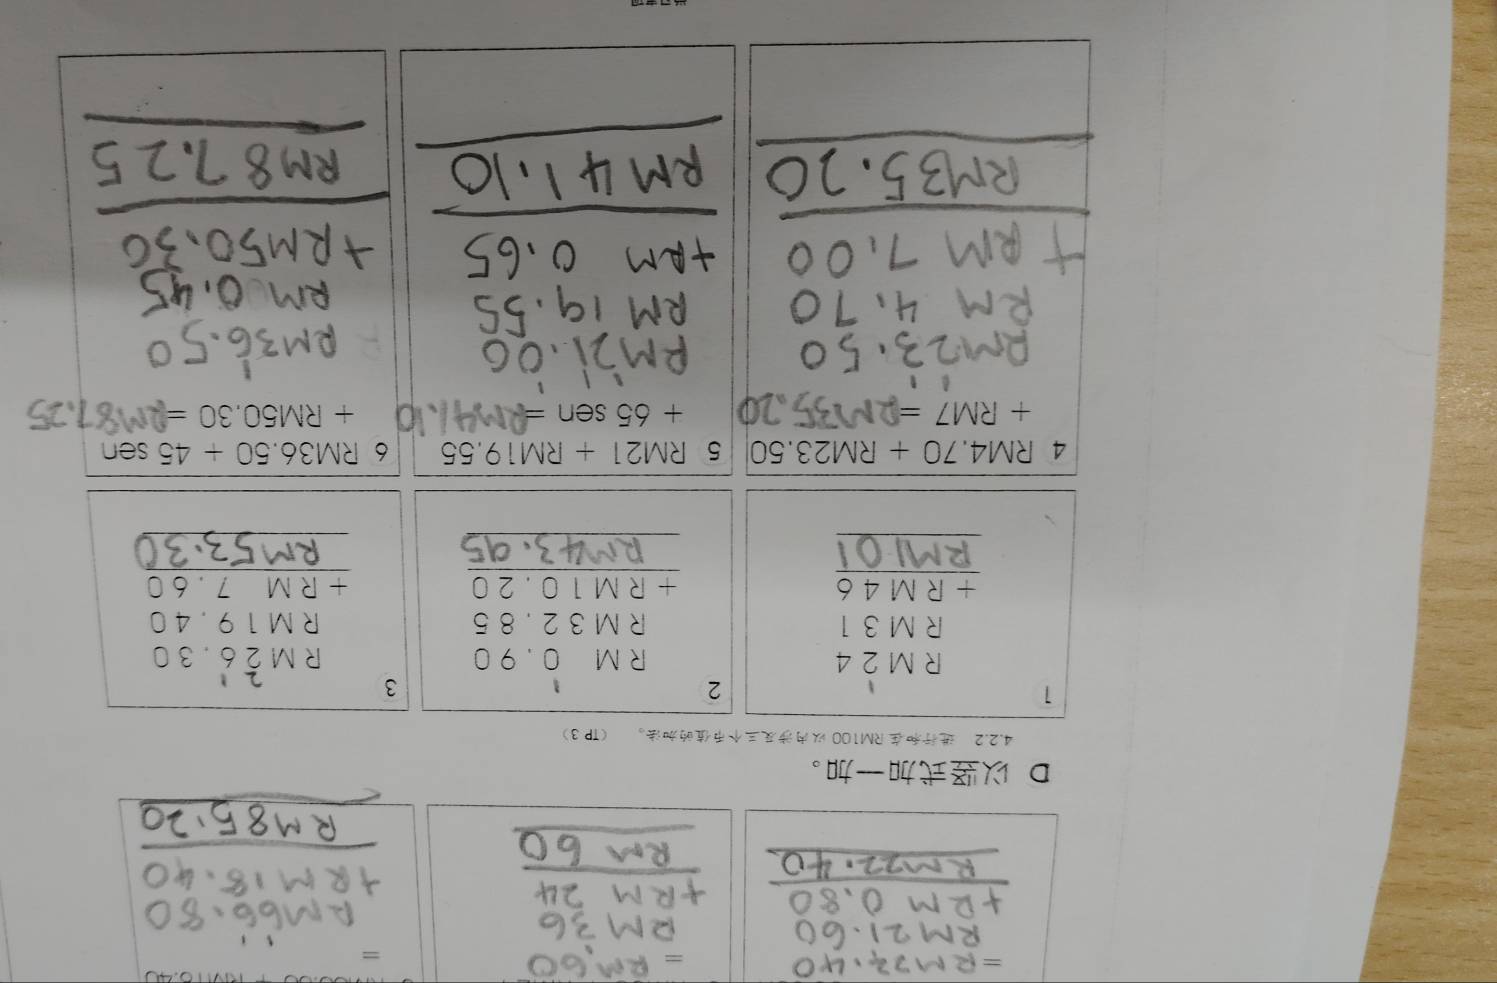 = RM22.40
RM21.60
+RM 0.80
RM22.40
= RM60
RM 36
+RM 24
RM 60
=
RM66.80
+RM18.40
RM85.20
D 以竖式加一加。
4.2.2 进行和在 RM100 以内涉及三个币值的加法。 (TP 3)
1
1
RM24
RM31
+RM46
RM101
2
1
RM 0.90
RM32.85
+RM10.20
RM43.95
3
2 1
RM26.30
RM19.40
+RM 7.60
RM53.30
4 RM4.70 + RM23.50
+ RM7 = RM35.20
1 1
RM23.50
RM 4.70
+RM 7.00
RM35.20
5 RM21 + RM19.55
+ 65 sen = RM41.10
1 1 1
RM21.00
RM19.55
+RM 0.65
RM41.10
6 RM36.50 + 45 sen
+ RM50.30 = RM87.25
1
RM36.50
RM0.45
+RM50.30
RM87.25